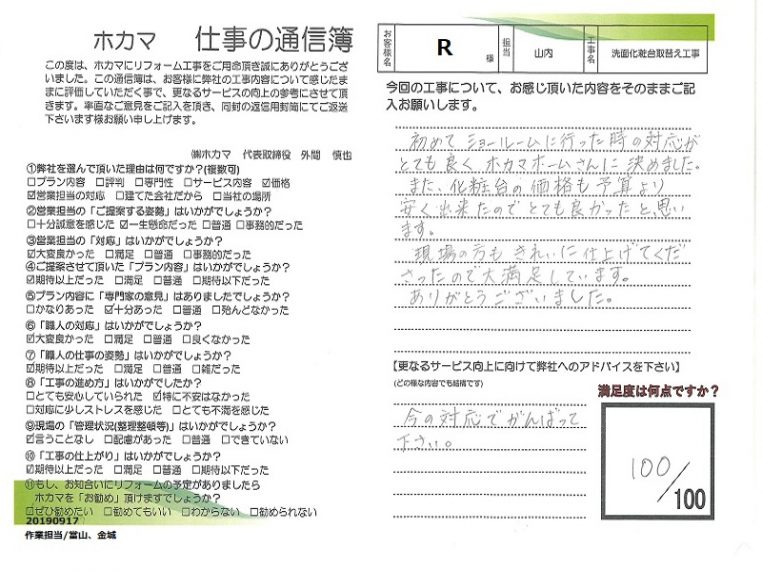 ホカマ 仕事の通信簿
この度は、ホカマにリフォーム工事をご用命頂き誠にありがとうござ
いました。この通信簿は、お客様に弊社の工事内容について感じたま
まに評価していただく事で、更なるサービスの向上の参考にさせて頂
きます。率直なご意見をご記入を頂き、同封の返信用封筒にてご返送
下さいます様お願い申し上げます。
㈱ホカマ 代表取締役 外間 慎也
①弊社を選んで頂いた理由は何ですか?(複数可)
□プラン内容 □評判 □専門性 □サービス内容 ☑価格
☑営業担当の対応 □建てた会社だから □当社の場所
②営業担当の「ご提案する姿勢」はいかがでしょうか?
□十分誠意を感じた ☑一生懸命だった □普通 □事務的だった
③営業担当の「対応」はいかがでしょうか?
☑大変良かった □満足 □普通 □事務的だった
④ご提案させて頂いた「プラン内容」はいかがでしょうか?
☑期待以上だった □満足 □普通 □期待以下だった
⑤プラン内容に「専門家の意見」はありましたでしょうか?
□かなりあった ☑十分あった □普通 □殆んどなかった
⑥「職人の対応」はいかがでしょうか?
☑大変良かった □満足 □普通 □良くなかった
⑦「職人の仕事の姿勢」はいかがでしょうか?
☑期待以上だった □満足 □普通 □雑だった
⑧「工事の進め方」はいかがでしたか?
□とても安心していられた ☑特に不安はなかった
□対応に少しストレスを感じた □とても不満を感じた
⑨現場の「管理状況(整理整頓等)」はいかがでしょうか?
☑言うことなし □配慮があった □普通 □できていない
⑩「工事の仕上がり」はいかがでしょうか?
☑期待以上だった □満足 □普通 □期待以下だった
⑪もし、お知合いにリフォームの予定がありましたら
ホカマを「お勧め」頂けますでしょうか?
□ぜひ勧めたい □勧めてもいい □わからない □勧められない
20190917
作業担当/當山、金城
お客様名 R 様 担当 山内 工事名 洗面化粧台取替え工事
今回の工事について、お感じ頂いた内容をそのままご記
入お願いします。
初めて ショールームに行った時の対応が
とても良く ホカマホームさんに決めました。
また、化粧台の価格も予算より
安く出来たのでとても良かったと思い
ます。
現場の方も きれいに仕上げてくだ
さったので大満足しています。
ありがとうございました。
【更なるサービス向上に向けて弊社へのアドバイスを下さい】
(どの様な内容でも結構です)
今の対応でがんばって
下さい。
満足度は何点ですか?
100/100